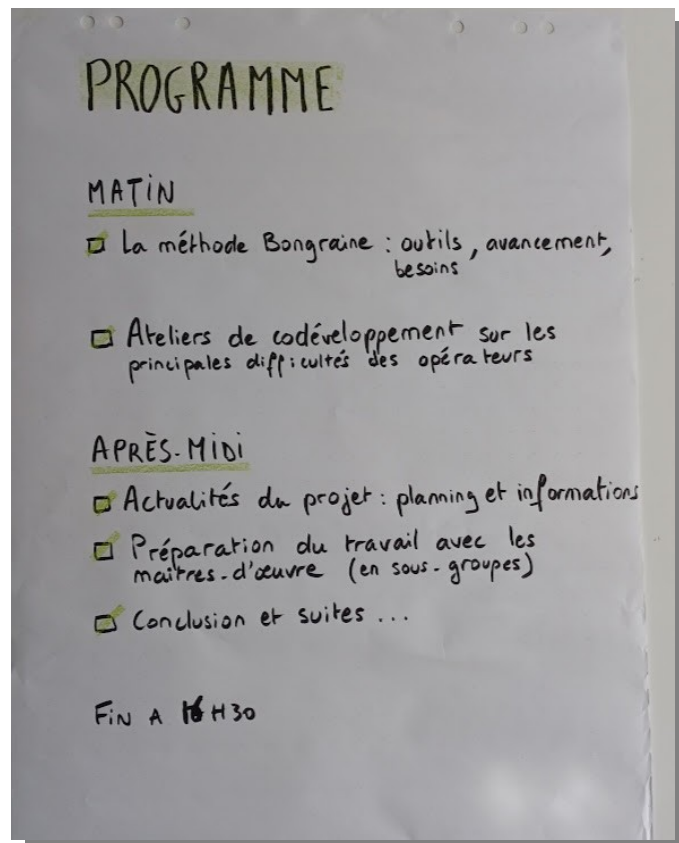 PROGRAMME
MATiN
La méthode Bongraine : outils, avancement,
besoins
Ateliers de codéveloppement sur les
principales difficultés des opérateurs
APRÈS-MiDi
Actualités du projet : planning et informations
Préparation du travail avec les
maîtres-d'œuvre (en sous-groupes)
Conclusion et suites ...
FiN A 16 H30